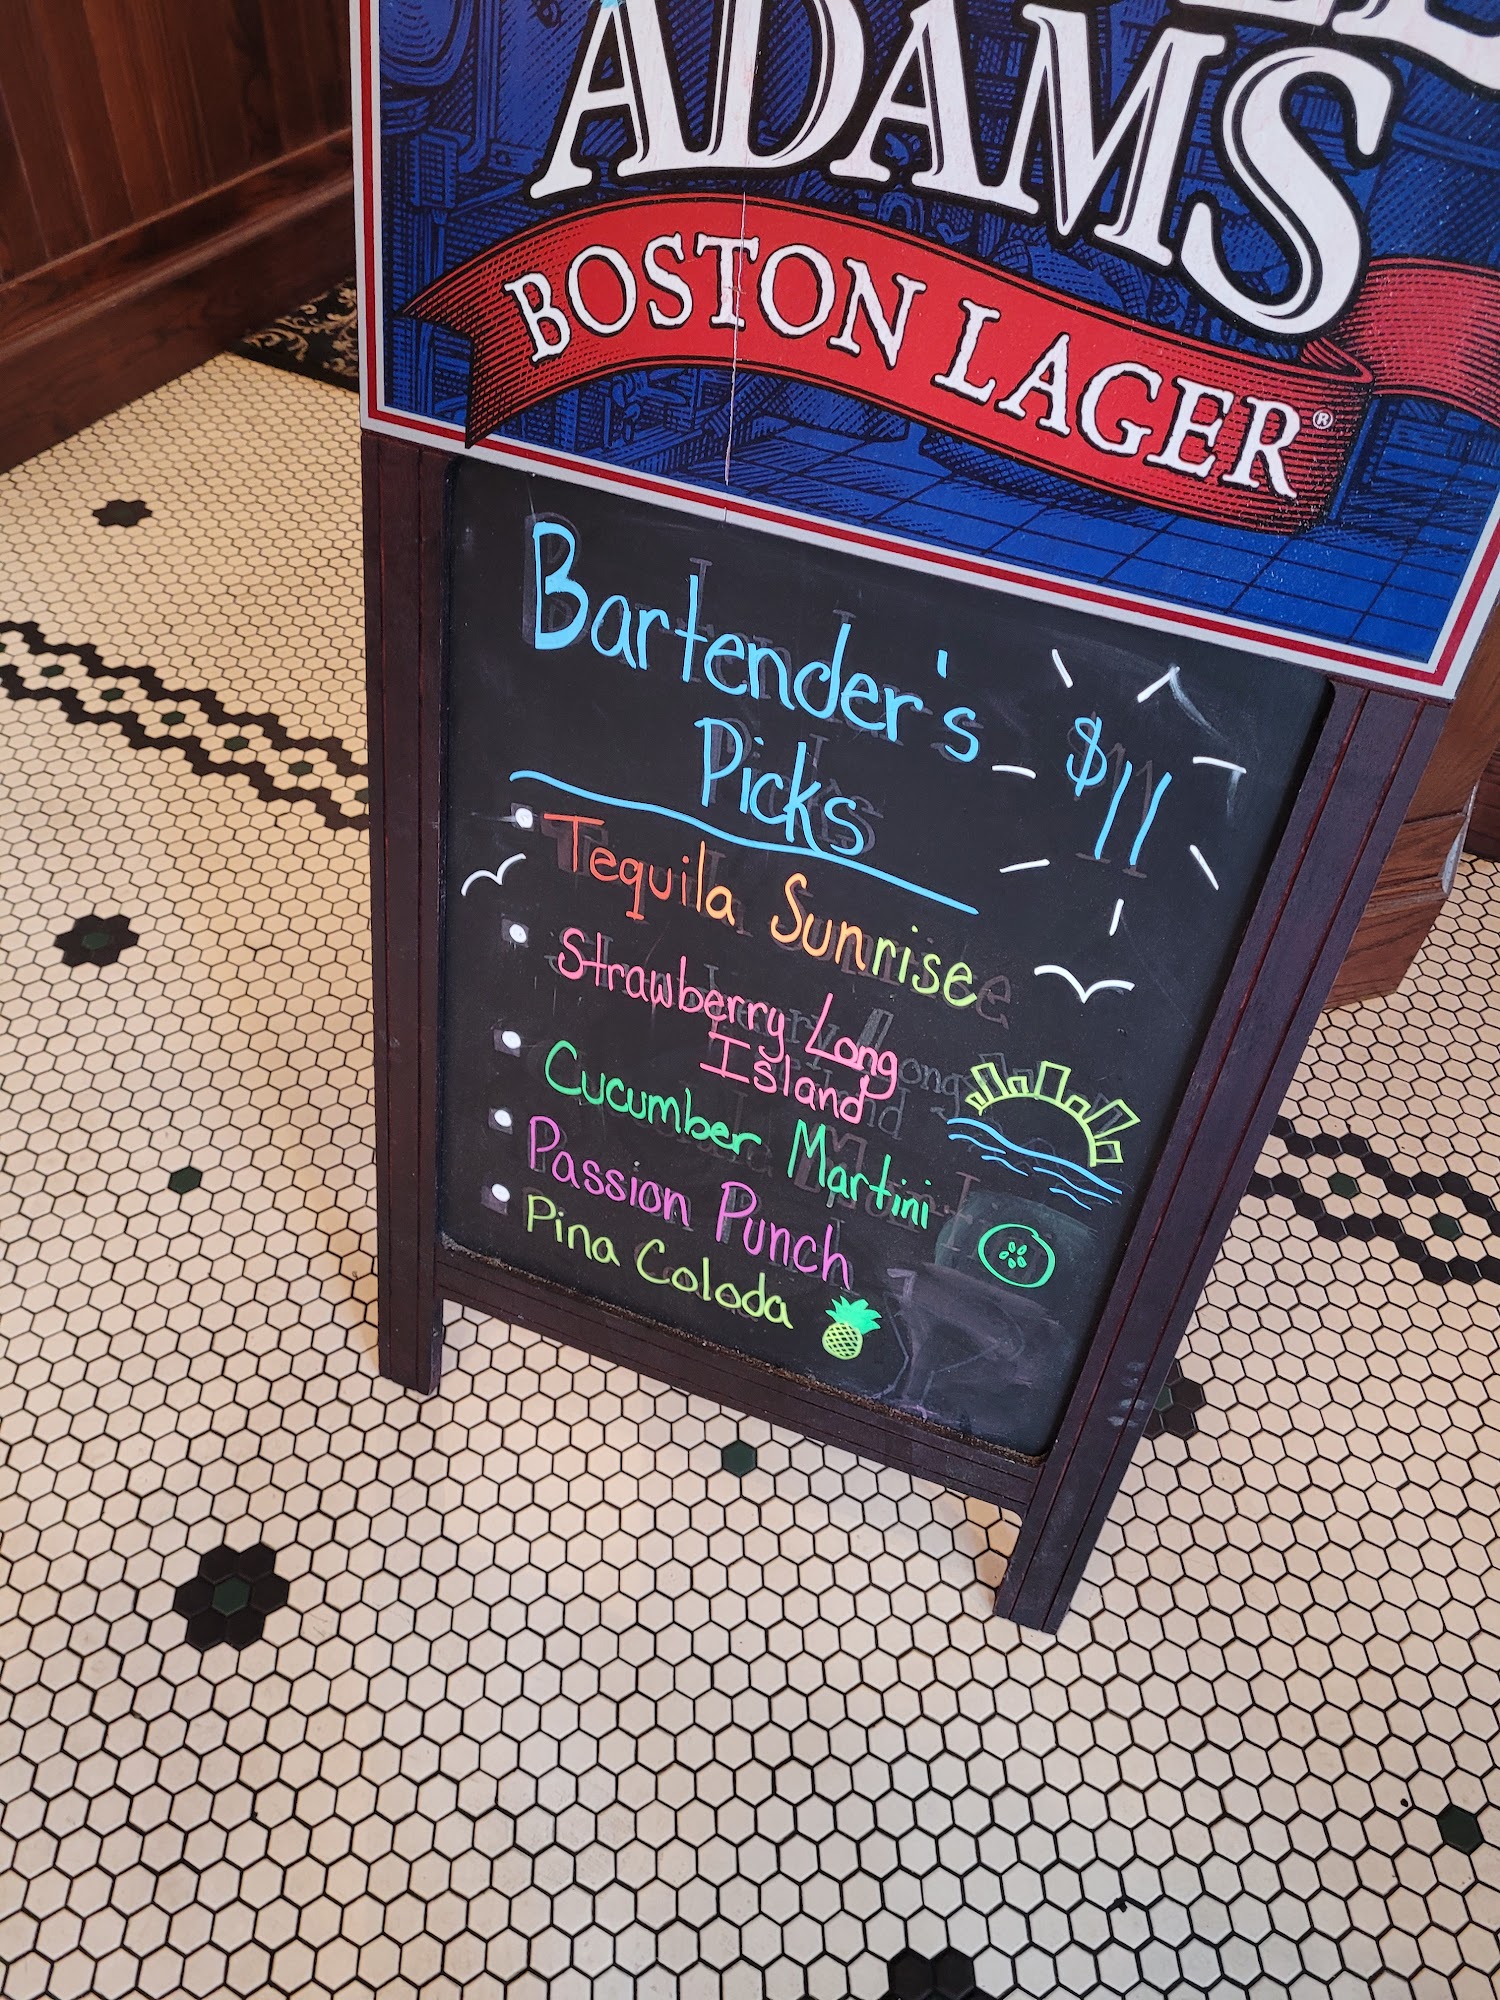 ADAMS
BOSTON LAGER®
Bartender's
Picks
$11
Tequila Sunrise
Strawberry Long
Island
Cucumber Martini
Passion Punch
Pina Coloda